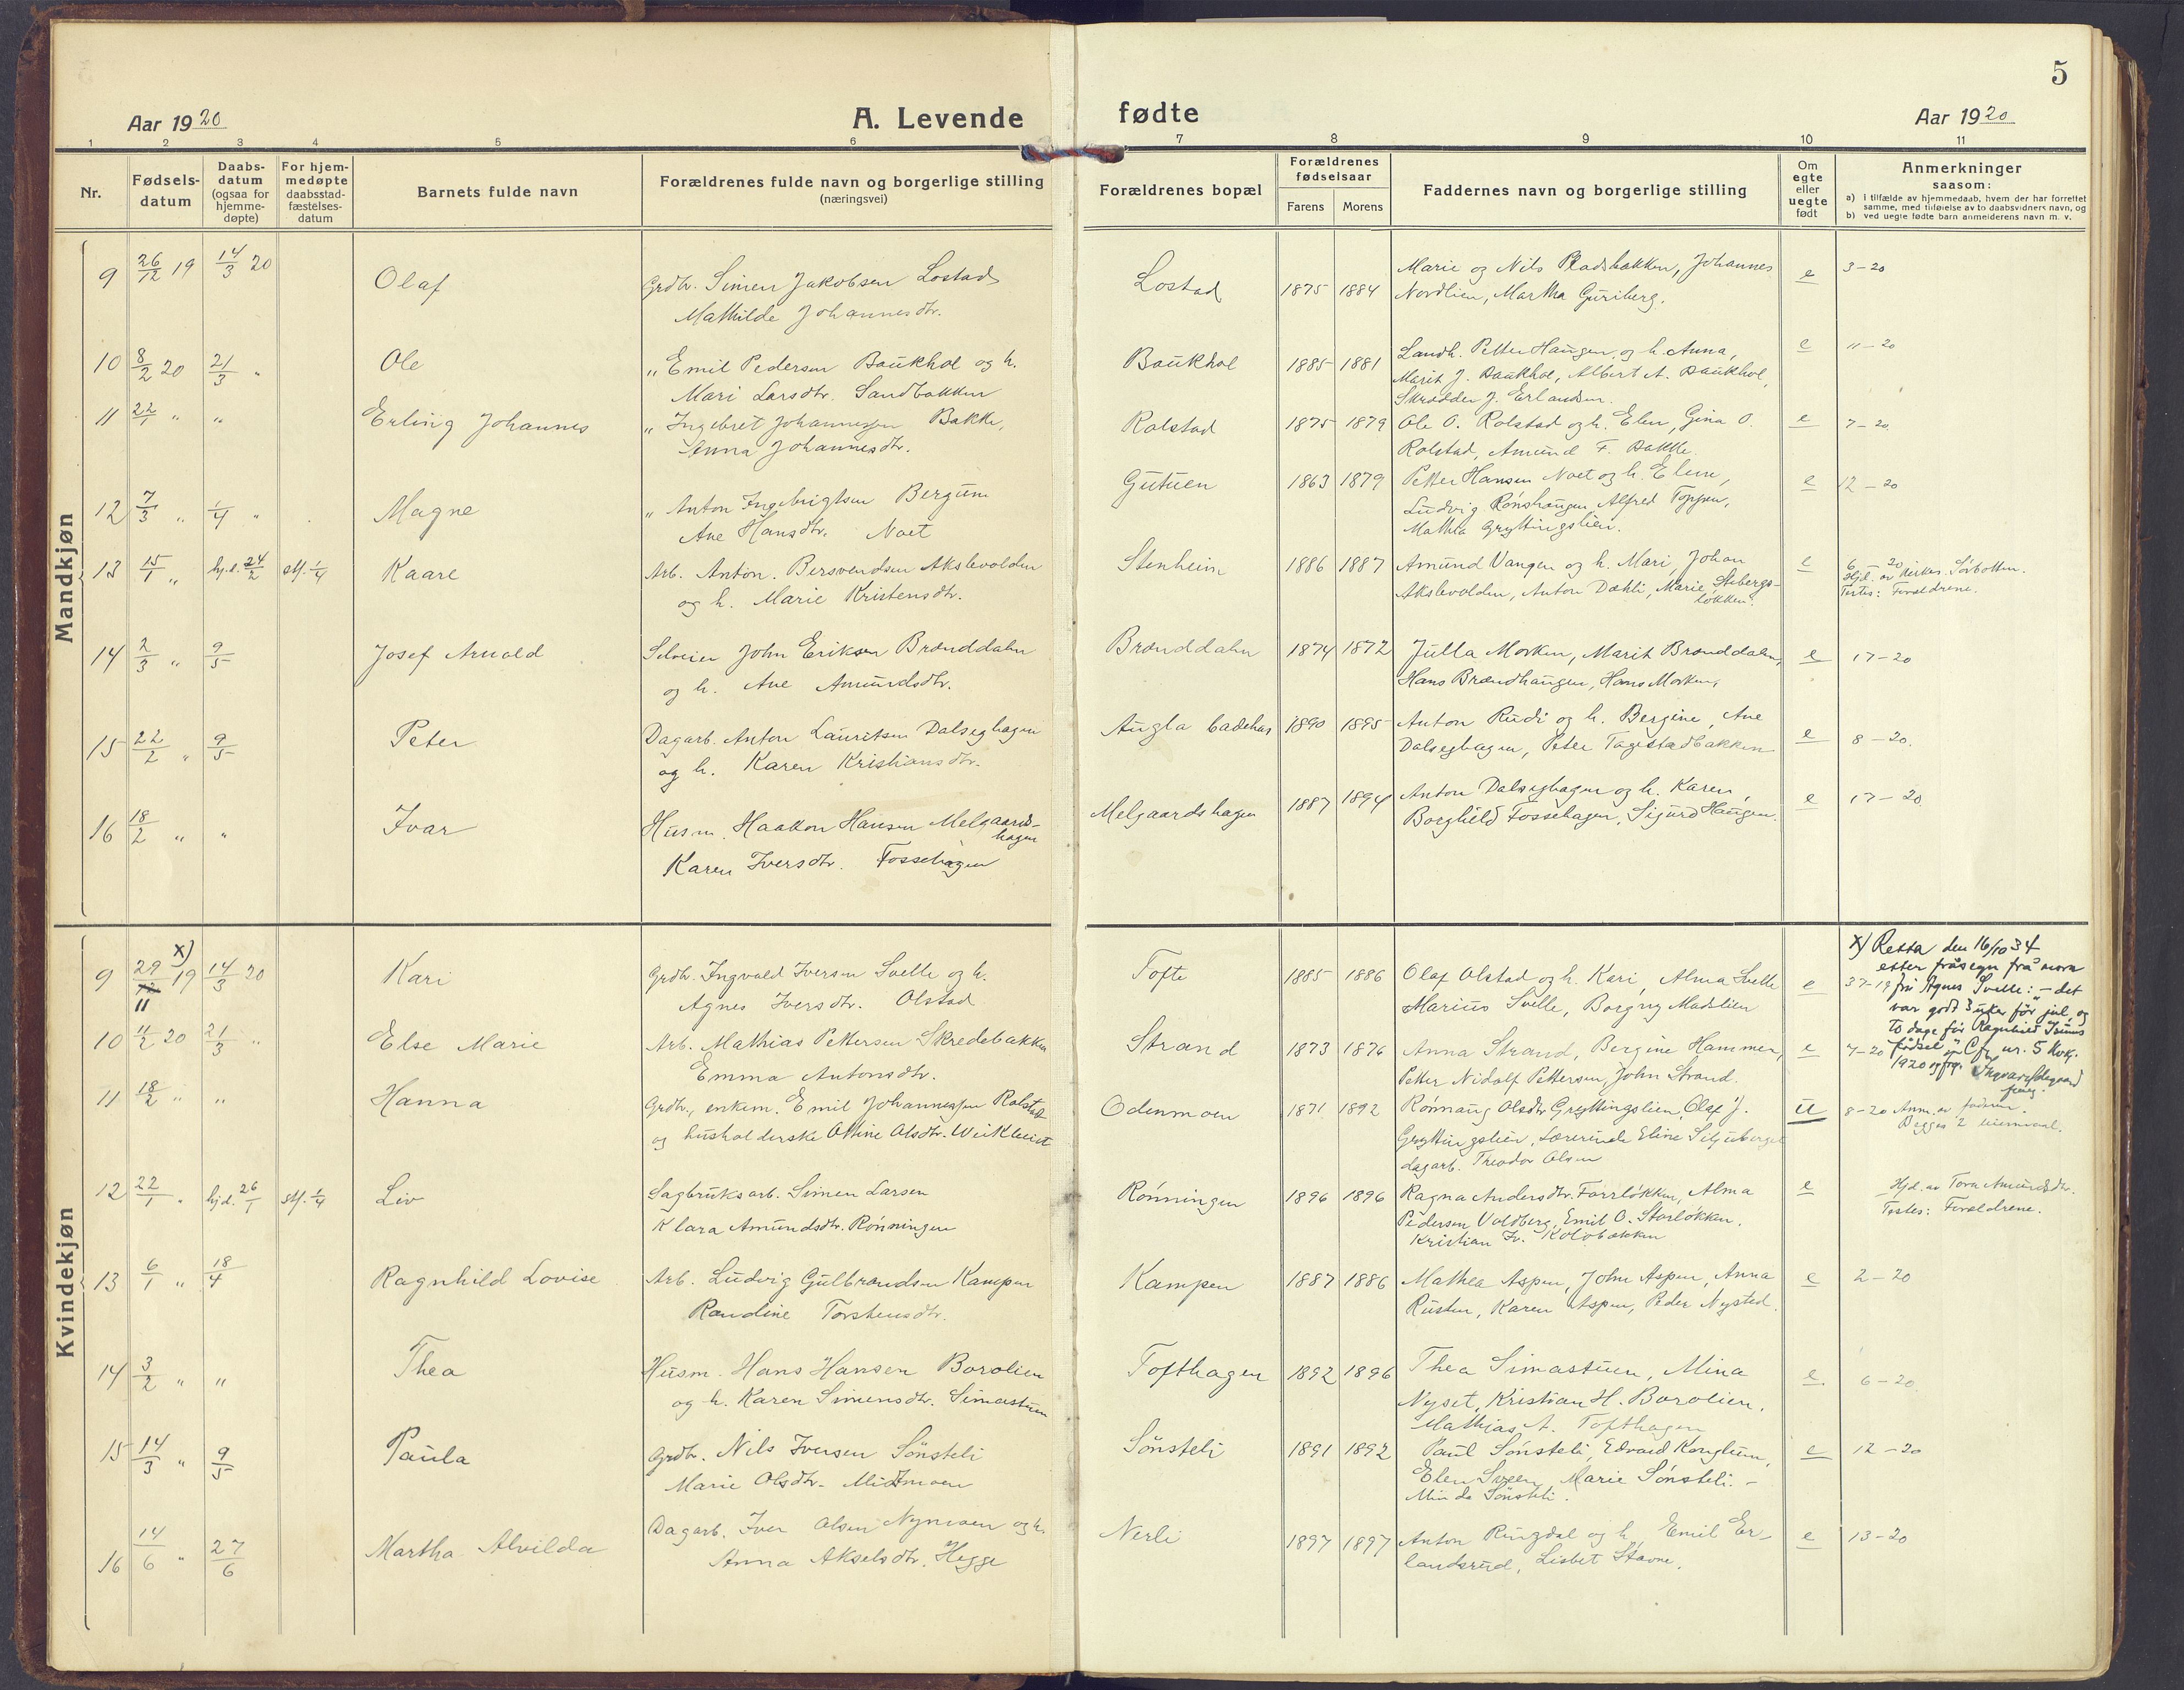 5
Aar 1920
A. Levende
fødte
Aar 1920
1 2 3 4 5 6 7 8 9 10 11
Nr.
Fødsels-
datum
Daabs-
datum
(ogsaa for
hjemme-
døpte)
For hjem-
medøpte
daabsstad-
fæstelses-
datum
Barnets fulde navn
Forældrenes fulde navn og borgerlige stilling
(næringsvei)
Forældrenes bopæl
Forældrenes
fødselsaar
Farens Morens
Faddernes navn og borgerlige stilling
Om
egte
eller
uegte
født
Anmerkninger
saasom:
a) i tilfælde av hjemmedaab, hvem der har forrettet
samme, med tilføielse av to daabsvidners navn, og
b) ved uegte fødte barn anmelderens navn m. v.
Mandkjøn
9 26/12 19 14/3 20
Olaf
Grdbr. Simen Jakobsen Lostad
Mathilde Johannesdtr.
Lostad
1875 1884
Marie og Nils Bladsbakken, Johannes
Nordlien, Martha Guriberg.
e
3-20
10 8/2 20 21/3 "
Ole
" Emil Pedersen Baukhol og h.
Mari Larsdtr. Sandbakken
Baukhol
1885 1881
Landh. Petter Haugen og h. Anna,
Marit J. Baukhol, Albert A. Baukhol,
Skrædder J. Erlandsen.
e
11-20
11 22/1 " "
Erling Johannes
" Ingebret Johannessen Bakke,
Anna Johannesdtr.
Rolstad
1875 1879
Ole O. Rolstad og h. Elen, Gina O.
Rolstad, Amund F. Bakke.
e
7-20
12 7/3 " 1/4 "
Magne
" Anton Ingebrigtsen Bergum
Ane Hansdtr. Noet
Gutuen
1863 1879
Petter Hansen Noet og h. Elene,
Ludvig Rønshaugen, Alfred Toppen,
Mathea Gryttingslien.
e
12-20
13 15/1 " hj.d. 24/2 stf. 1/4
Kaare
Arb. Anton Bersvendsen Akslevolden
og h. Marie Kristensdtr.
Stenheim
1886 1887
Amund Vangen og h. Mari, Johan
Akslevolden, Anton Dæhli, Marie Stebergs-
løkken.
e
6-20
Hjd. av Kirkes. Sørbotten.
Testes: Forældrene.
14 2/3 " 9/5
Josef Arnold
Selveier John Eriksen Brænddalen
og h. Ane Amundsdtr.
Brænddalen
1874 1872
Julla Morken, Marit Brænddalen,
Hans Brændhaugen, Hans Morken,
e
17-20
15 22/2 " 9/5
Peter
Dagarb. Anton Lauritsen Dalseghagen
og h. Karen Kristiansdtr.
Augla badehus
1890 1895
Anton Rudi og h. Bergine, Ane
Dalseghagen, Peter Tagestadbakken
e
8-20.
16 18/2 " "
Ivar
Husm. Haakon Hansen Melgaards-
hagen
Karen Iversdtr. Fossehagen
Melgaardshagen
1887 1894
Anton Dalseghagen og h. Karen,
Borghild Fossehagen, Sigurd Haugen.
e
17-20
Kvindekjøn
9 29/12 19 x) 14/3 20
11
Kari
Grdbr. Ingvald Iversen Svelle og h.
Agnes Iversdtr. Olstad
Tofte
1885 1886
Olaf Olstad og h. Kari, Alma Svelle
Marius Svelle, Borgny Madslien
e
37-19
x) Retta den 16/10 34
etter fråsegn frå mora
fru Agnes Svelle: "- det
var godt 3 uker før jul, og
to dage før Ragnhild
fødsel". Cfr. nr. 5 kvk.
1920
10 11/2 20 21/3 "
Else Marie
Arb. Mathias Pettersen Skredebakken
Emma Antonsdtr.
Strand
1873 1876
Anna Strand, Bergine Hammer,
Petter Nidolf Pettersen, John Strand.
e
7-20
11 18/2 " "
Hanna
Grdbr., enkem. Emil Johannessen Rolstad
og husholderske Oline Olsdtr. Weikleivet
Odenmoen
1871 1892
Rønnaug Olsdtr. Gryttingslien, Olaf J.
Gryttingslien, Lærerinde Eline Siljuberget
dagarb. Theodor Olsen
u
8-20 Anm. av faderen.
Begges 2 leiermaal.
12 22/1 " hj.d. 26/1 stf. 1/4
Liv
Sagbruksarb. Simen Larsen
Klara Amundsdtr. Rønningen
Rønningen
1896 1896
Ragna Andersdtr. Forrløkken, Alma
Pedersen Voldberg, Emil O. Storløkken.
Kristian Kolobakken
e
Hjd. av Tora Amundsdtr.
Testes: Forældrene.
13 6/1 " 18/4
Ragnhild Lovise
Arb. Ludvig Gulbrandsen Kampen
Randine Torstensdtr.
Kampen
1887 1886
Mathea Aspen, John Aspen, Anna
Rusten, Karen Aspen, Peder Nysted.
e
2-20
14 3/2 " "
Thea
Husm. Hans Hansen Borolien
og h. Karen Simensdtr. Simastuen
Tofthagen
1892 1896
Thea Simastuen, Mina
Nyset, Kristian H. Borolien,
Mathias A. Tofthagen
e.
6-20
15 14/3 " 9/5
Paula
Grdbr. Nils Iversen Sønsteli
Marie Olsdtr. Midtmoen
Sønsteli
1891 1892
Paul Sønsteli, Edvard Konglum,
Elen Sveen, Marie Sønsteli. -
Minda Sønsteli.
e
12-20
16 14/6 " 27/6
Martha Alvilda
Dagarb. Iver Olsen Nymoen og h.
Anna Akselsdtr. Hegge
Nerli
1897 1897
Anton Ringdal og h. Emil Er-
landsrud, Lisbet Stavne.
e
13-20